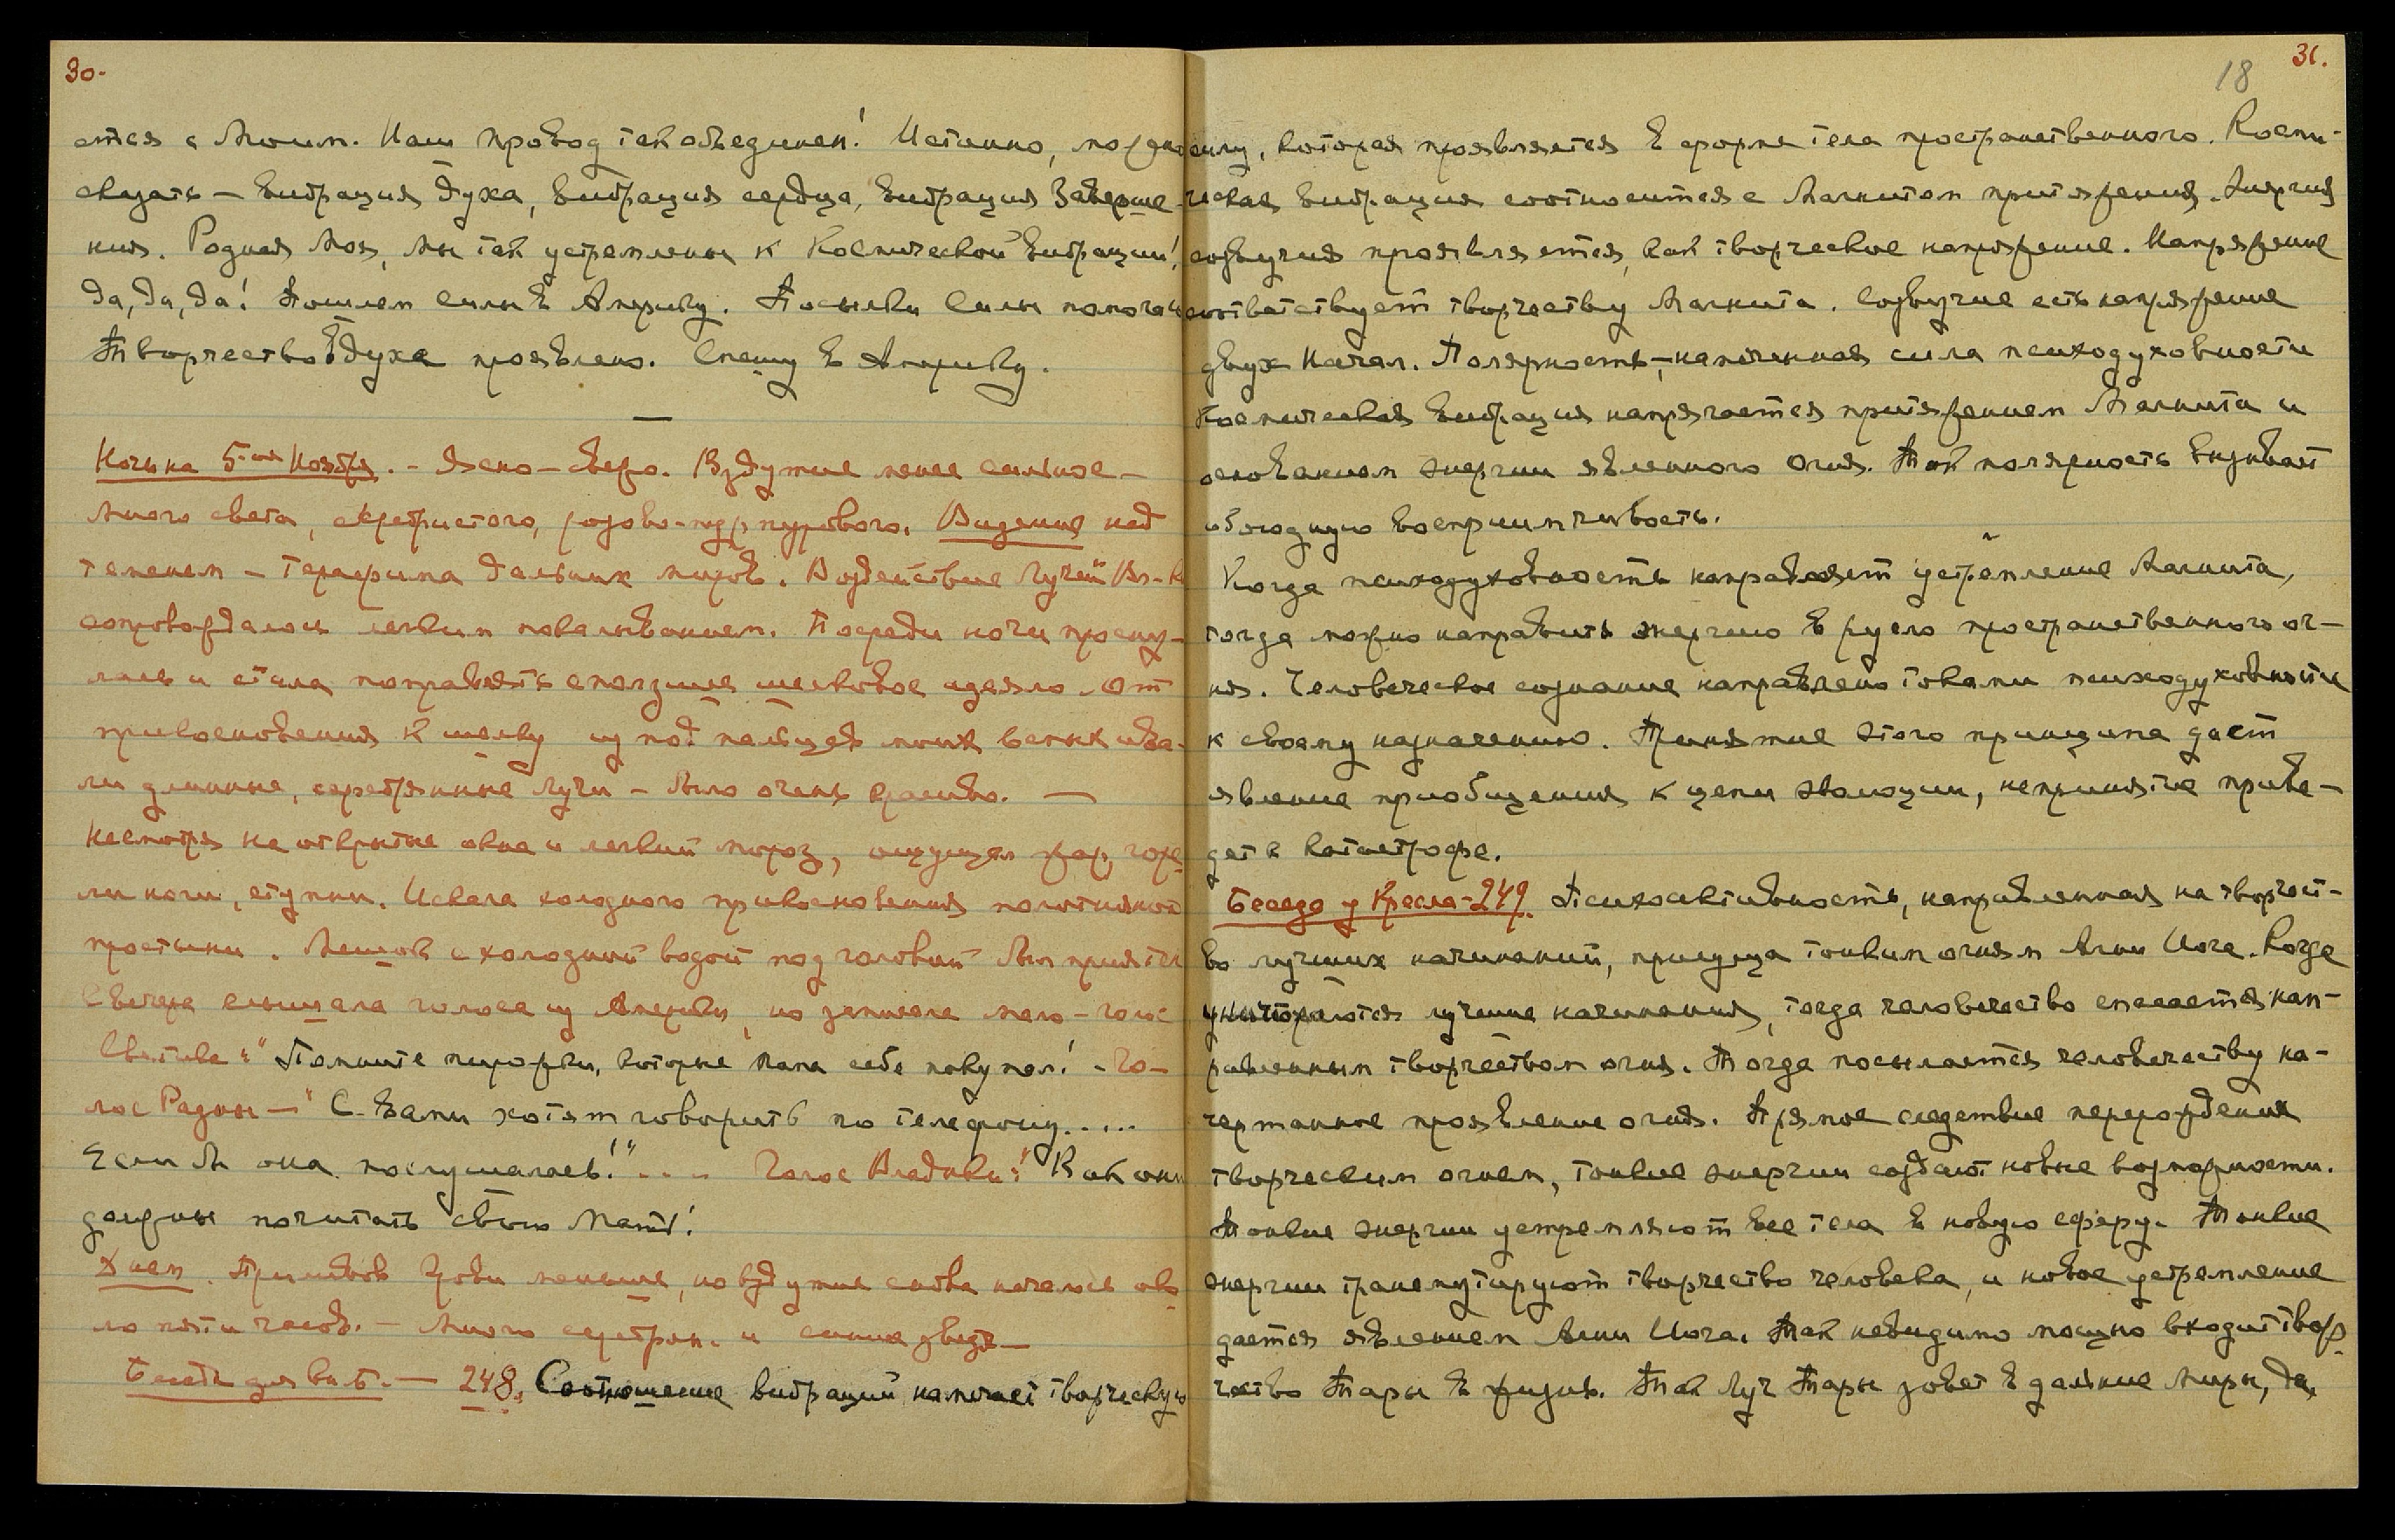 30.
ется с Моим. Наш провод так объединен! Истинно, можно
сказать — вибрация духа, вибрация сердца, вибрация Заверше-
ния. Родная Моя, мы так устремлены к Космической вибрации!
Да, да, да! Пошлем силы в Америку. Посылки силы
Творчество духа проявлено. Спешу в Америку.
—
Ночь на 5-ое Ноября. - Ясно – свежо. Вздутие менее сильное —
Много света, серебристого, розово-пурпурового. Видение над
теменем — Терафима дальних миров. Воздействие Лучей Вл-к
сопровождалось легким покалыванием. Посреди ночи просну-
лась и стала поправлять сползшее шелковое одеяло. От
прикосновения к шелку из под пальцев моих вспыхива-
ли длинные, серебрянные лучи – было очень красиво. —
Несмотря на открытые окна и легкий мороз, ощущал жар, горе-
ли ноги, ступни. Искала холодного прикосновения полотняной
простыни. Мешок с холодной водой под головой был приятен
Вечера слышала голоса из Америки, но записала мало – голос
Светика: "Помните пирожки, которые папа себе покупал! - Го-
лос Радны —" С Вами хотят говорить по телефону.....
Если бы она послушалась!".... Голос Владыки:" Как они
должны почитать свою Мать!
Днем. Приливов крови меньше, но вздутие снова началось око-
ло пяти часов. — Много серебрян. и синие звезд—
Беседа для вил. — 248. Соотношение вибраций намечает творческую
31.
18
силу, которая проявляется в форме тела пространственного. Косми-
ческая вибрация соотносится с Магнитом притяжения. Энергия
созвучия проявляется, как творческое напряжение. Напряжение
соответствует творчеству Магнита. Созвучие есть напряжение
двух Начал. Полярность,– намеченная сила психодуховности
Космическая вибрация напрягается притяжением Магнита и
основанием энергии явленного огня. Так полярность вызывает
обоюдную восприимчивость.
Когда психодуховность направляет устремление Магнита,
тогда можно направить энергию в русло пространственного ог-
ня. Человеческое сознание направлено токами психодуховности
к своему назначению. Принятие этого принципа дает
явление приобщения к цепи эволюции, непринятие приве-
дет к катастрофе.
Беседа у Кресла - 249. Психоактивность, направленная на творчест-
во лучших начинаний, присуща тонким огням Агни Йога. Когда
уничтожаются лучшие начинания, тогда человечество спасается нап-
равленным творчеством огня. Тогда посылается человечеству на-
чертанное проявление огня. Прямое следствие перерождения
творческим огнем, тонкие энергии создают новые возможности.
Тонкие энергии устремляют все тела в новую сферу. Тонкие
энергии трансмутируют творчество человека, и новое устремление
дается явлением Агни Йога. Так невидимо мощно входит твор-
чество Тары в жизнь. Так Луч Тары зовет в дальние Миры, да,